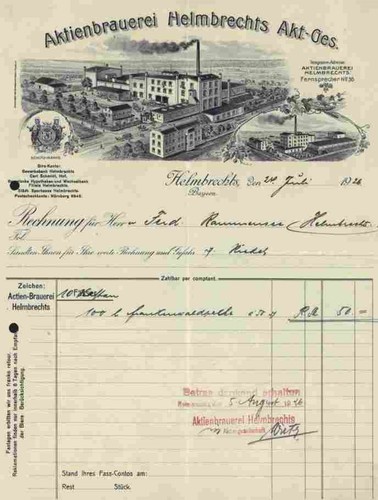 Aktienbrauerei Helmbrechts Akt-Ges.
Telegramm-Adresse:
AKTIENBRAUEREI
HELMBRECHTS.
Fernsprecher Nr. 36
SCHUTZ-MARKE.
Giro-Konto:
Gewerbebank Helmbrechts
Carl Schmidt, Hof.
Bayerische Hypotheken- und Wechselbank
Filiale Helmbrechts
Städt. Sparkasse Helmbrechts
Postscheckkonto: Nürnberg
Helmbrechts, den 24. Juli 1926
Bayern.
Rechnung für Herrn Ferd Helmbrechts
Fol.
Sandten Ihnen für Ihre werte Rechnung und Gefahr
Zahlbar per comptant.
Zeichen:
Actien-Brauerei
Helmbrechts
100 l 50
Fastagen erbitten wir uns franko retour.
Reklamationen finden nur innerhalb 8 Tagen nach Empfang
der Biere Berücksichtigung.
Betrag dankend erhalten
Helmbrechts, 5 August 1926
Aktienbrauerei Helmbrechts
Aktiengesellschaft
Stand Ihres Fass-Contos am:
Rest Stück.